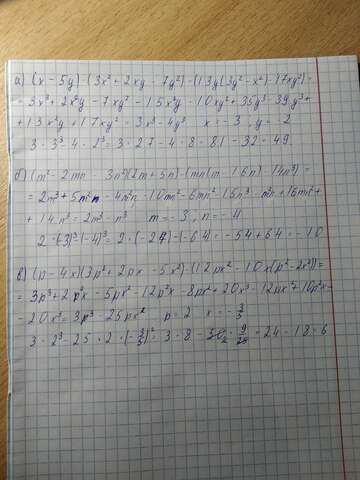 а) (x - 5y) · (3x² + 2xy - 7y²) - (13y(3y² - x²) - 17xy²) =
= 3x³ + 2x²y - 7xy² - 15x²y - 10xy² + 35y³ - 39y³ +
+ 13x²y + 17xy² = 3x³ - 4y³ x = -3 y = -2
3 · 3³ - 4 · 2³ = 3 · 27 - 4 · 8 = 81 - 32 = 49.
б) (m² - 2mn - 3n²)(2m + 5n) - (mn(m - 16n) - 14n³) =
= 2m³ + 5m²n - 4m²n - 10mn² - 6mn² - 15n³ - m²n + 16mn² +
+ 14n³ = 2m³ - n³ m = -3, n = -4
2 · (-3)³ - (-4)³ = 2 · (-27) - (-64) = -54 + 64 = -10
в) (p - 4x)(3p² + 2px - 5x²) - (12px² - 10x(p² - 2x²)) =
= 3p³ + 2p²x - 5px² - 12p²x - 8px² + 20x³ - 12px² + 10p²x -
- 20x³ = 3p³ - 25px² p = 2 x = -3/5
3 · 2³ - 25 · 2 · (-3/5)² = 3 · 8 - 50 · 9/25 = 24 - 18 = 6